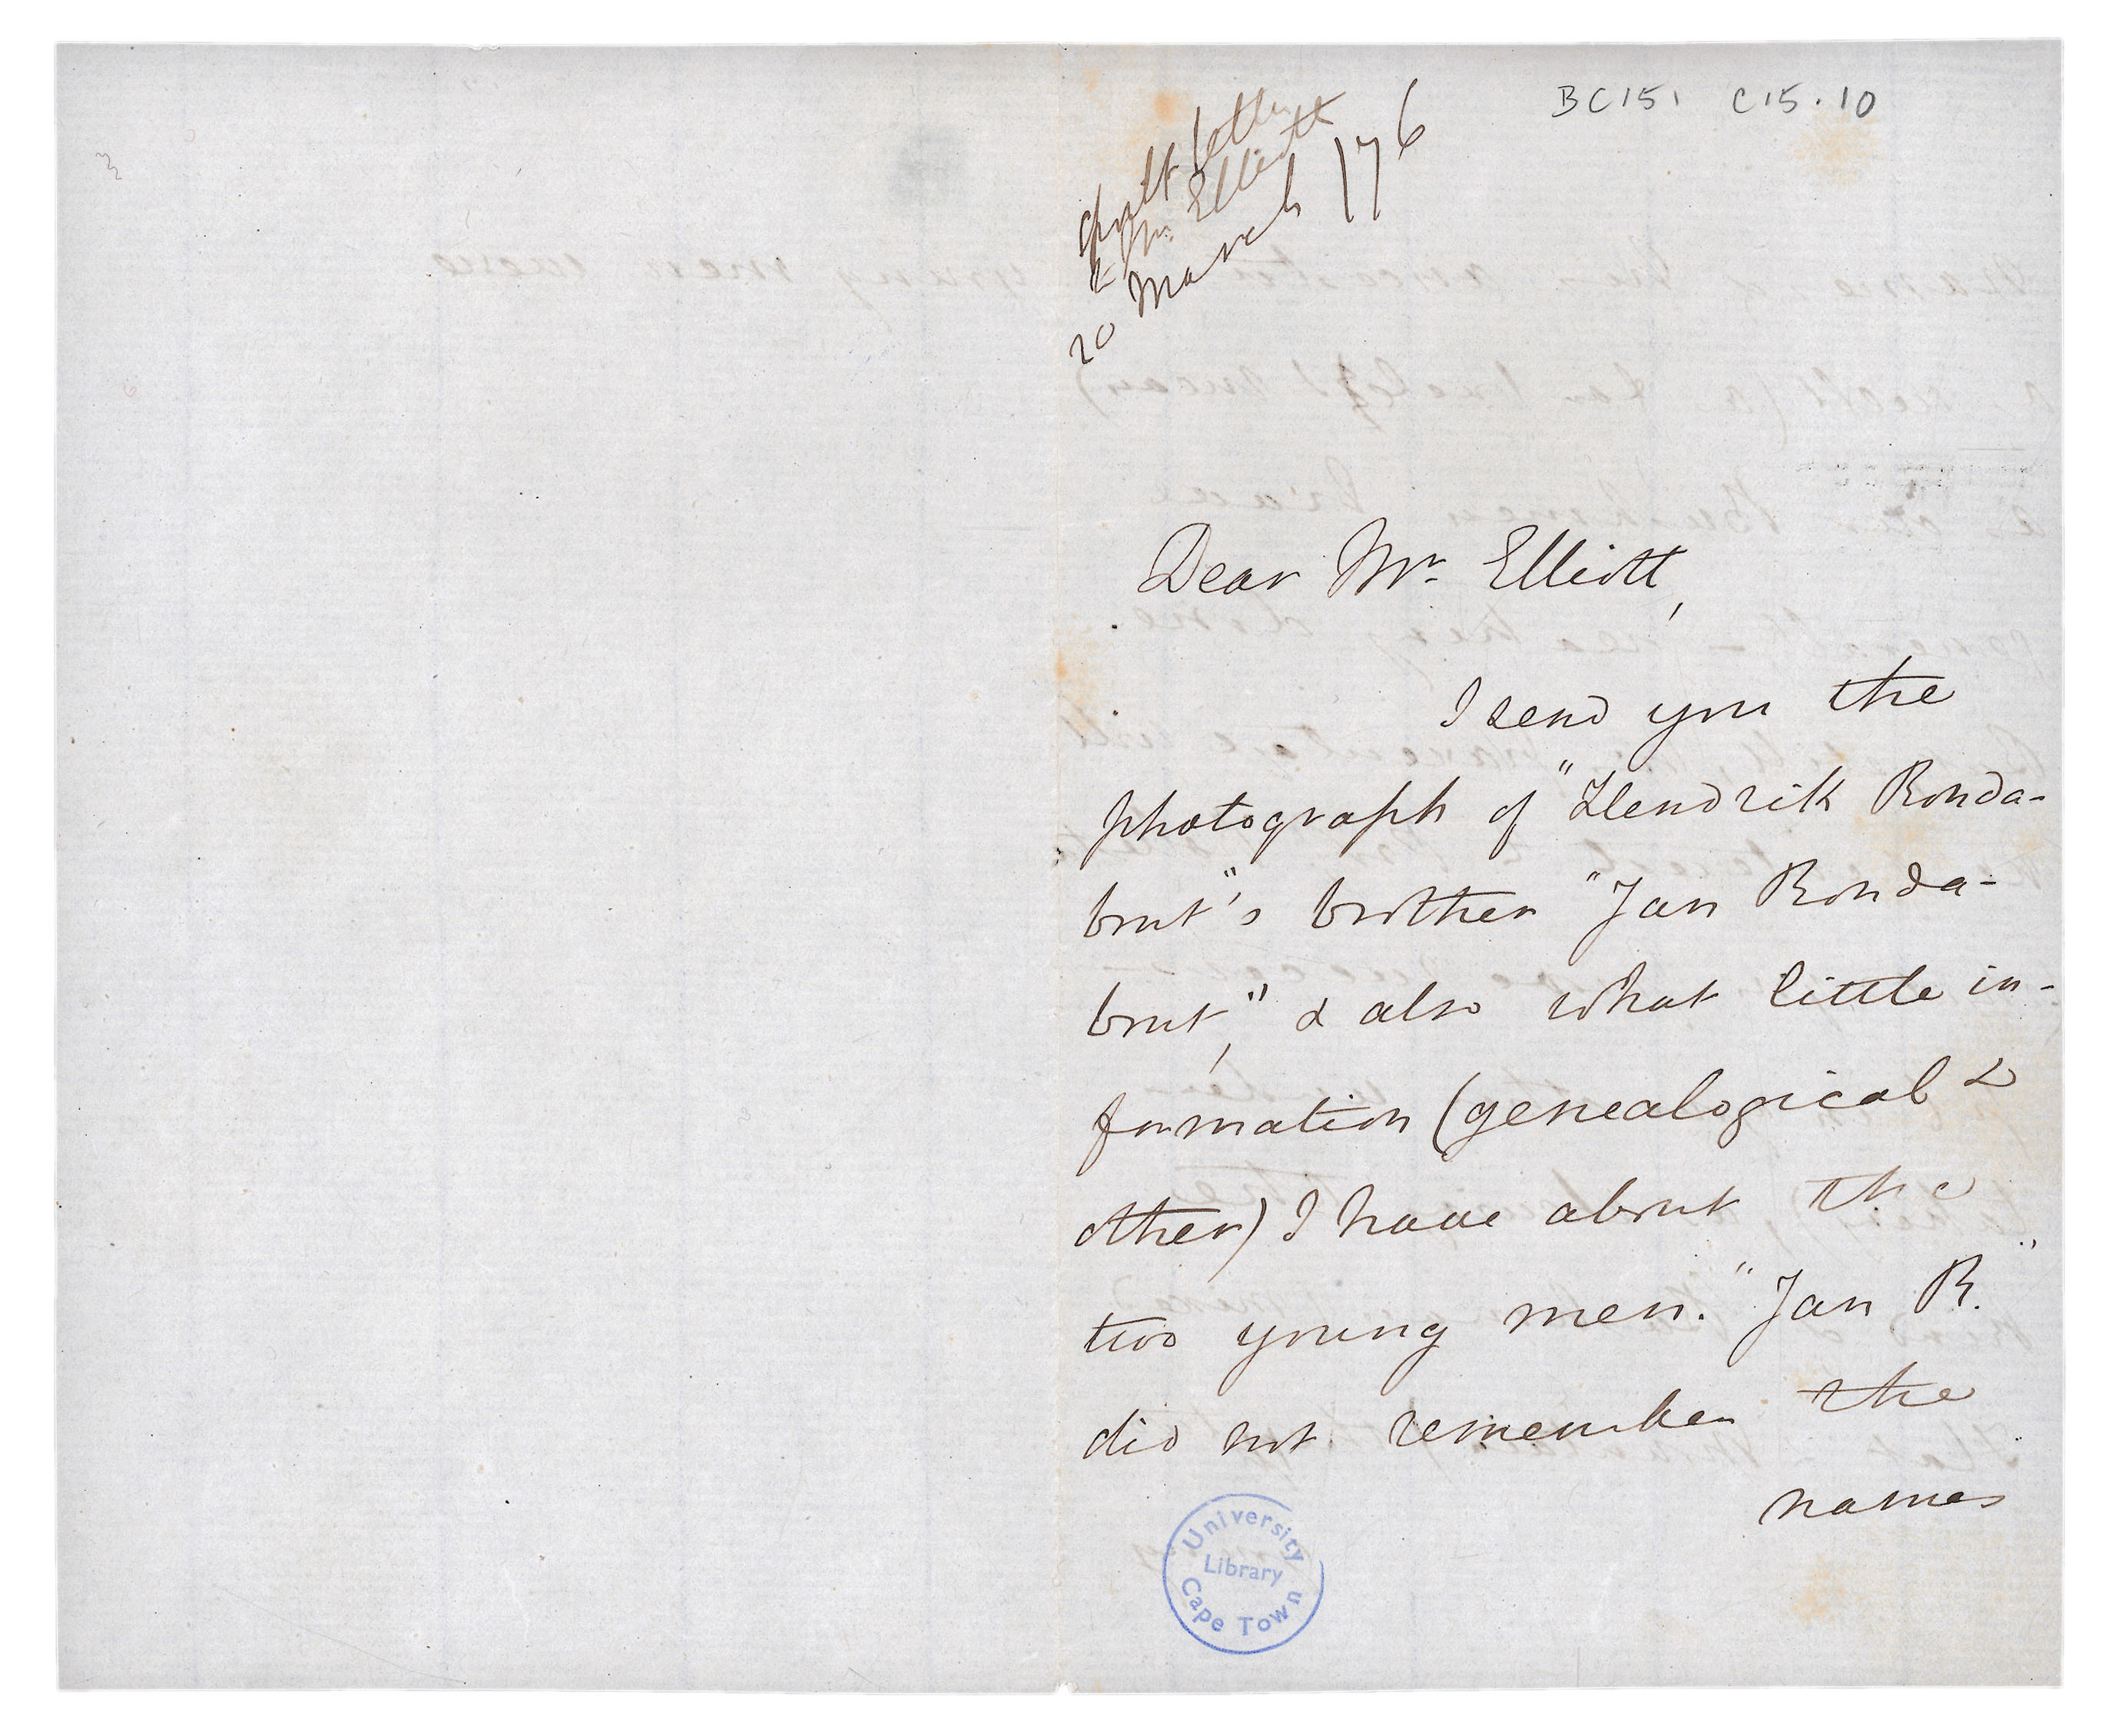 BC151 C15.10
draft letter
to Mr. Elliott
20 March /76
Dear Mr. Elliott,
I send you the
photograph of "Hendrik Ronda-
bout"'s brother "Jan Ronda-
bout," & also what little in-
formation (genealogical &
other) I have about the
two young men. "Jan R."
did not remember the
names
University
Library
Cape Town